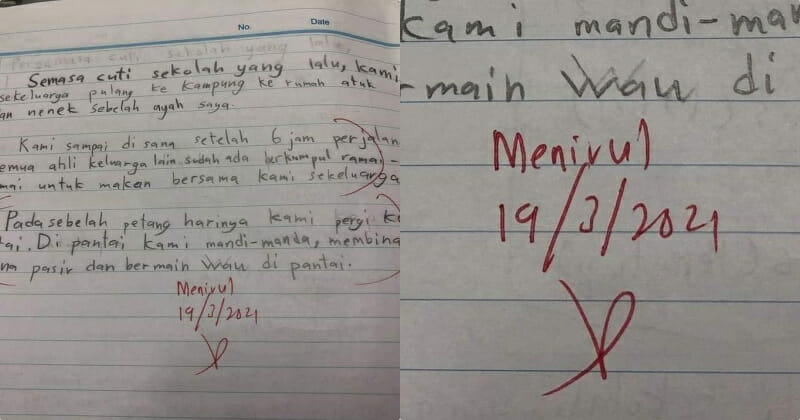 No.
Date
Semasa cuti sekolah yang lalu, kami
sekeluarga pulang ke kampung ke rumah atuk
an nenek sebelah ayah saya.
Kami sampai di sana setelah 6 jam perjalan
emua ahli keluarga lain sudah ada berkumpul ramai-
mai untuk makan bersama kami sekeluarga
Pada sebelah petang harinya kami pergi k
tai. Di pantai kami mandi-manda, membina
na pasir dan bermain wau di pantai.
Menirul
19/3/2021
kami mandi-man
-main wau di
Menirul
19/3/2021